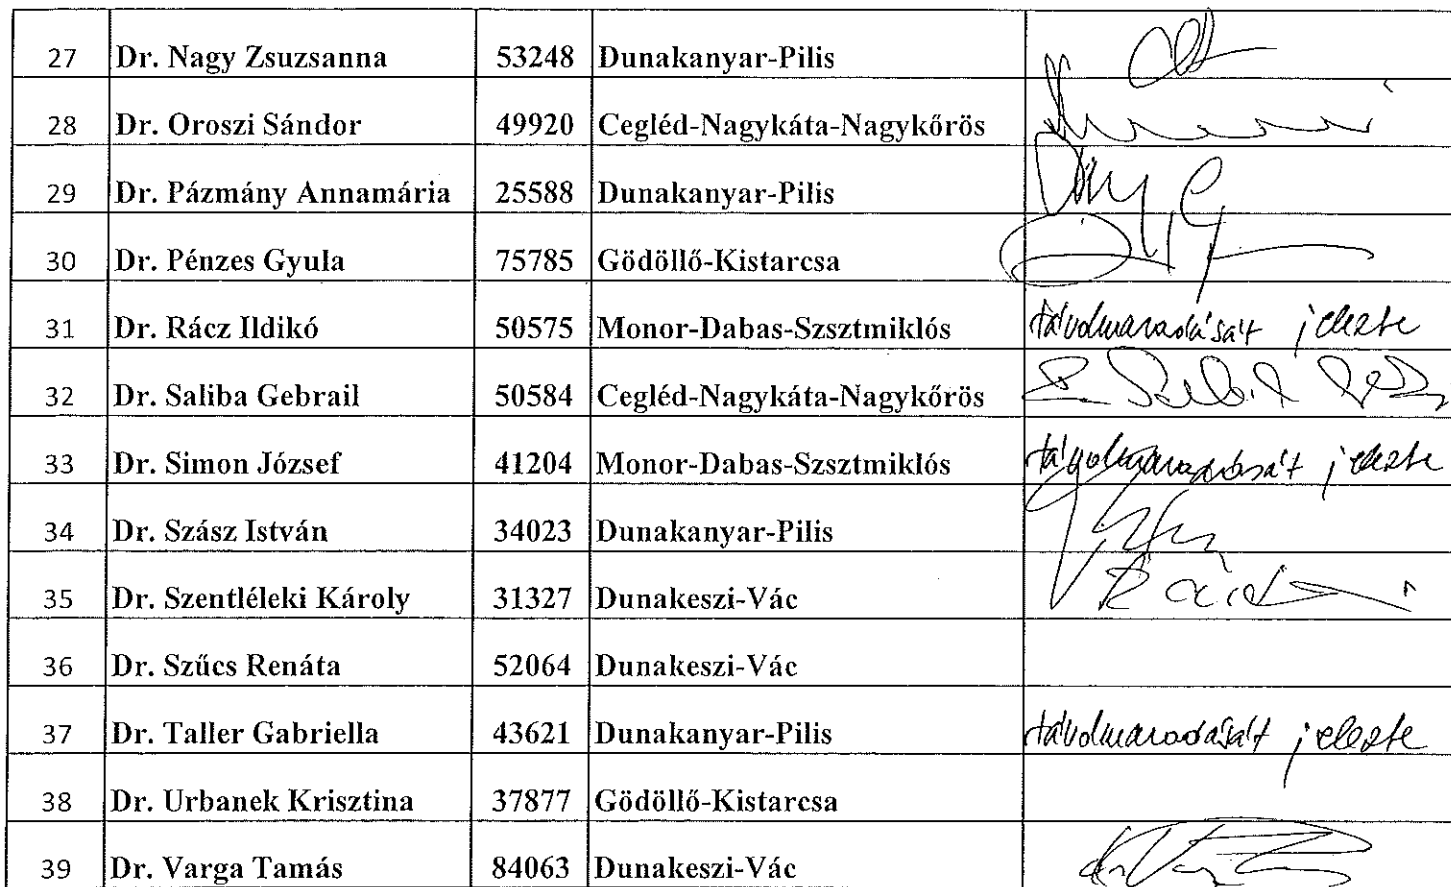 27 Dr. Nagy Zsuzsanna 53248 Dunakanyar-Pilis
28 Dr. Oroszi Sándor 49920 Cegléd-Nagykáta-Nagykőrös
29 Dr. Pázmány Annamária 25588 Dunakanyar-Pilis
30 Dr. Pénzes Gyula 75785 Gödöllő-Kistarcsa
31 Dr. Rácz Ildikó 50575 Monor-Dabas-Szsztmiklós távolmaradását jelezte
32 Dr. Saliba Gebrail 50584 Cegléd-Nagykáta-Nagykőrös
33 Dr. Simon József 41204 Monor-Dabas-Szsztmiklós távolmaradását jelezte
34 Dr. Szász István 34023 Dunakanyar-Pilis
35 Dr. Szentléleki Károly 31327 Dunakeszi-Vác
36 Dr. Szűcs Renáta 52064 Dunakeszi-Vác
37 Dr. Taller Gabriella 43621 Dunakanyar-Pilis távolmaradását jelezte
38 Dr. Urbanek Krisztina 37877 Gödöllő-Kistarcsa
39 Dr. Varga Tamás 84063 Dunakeszi-Vác